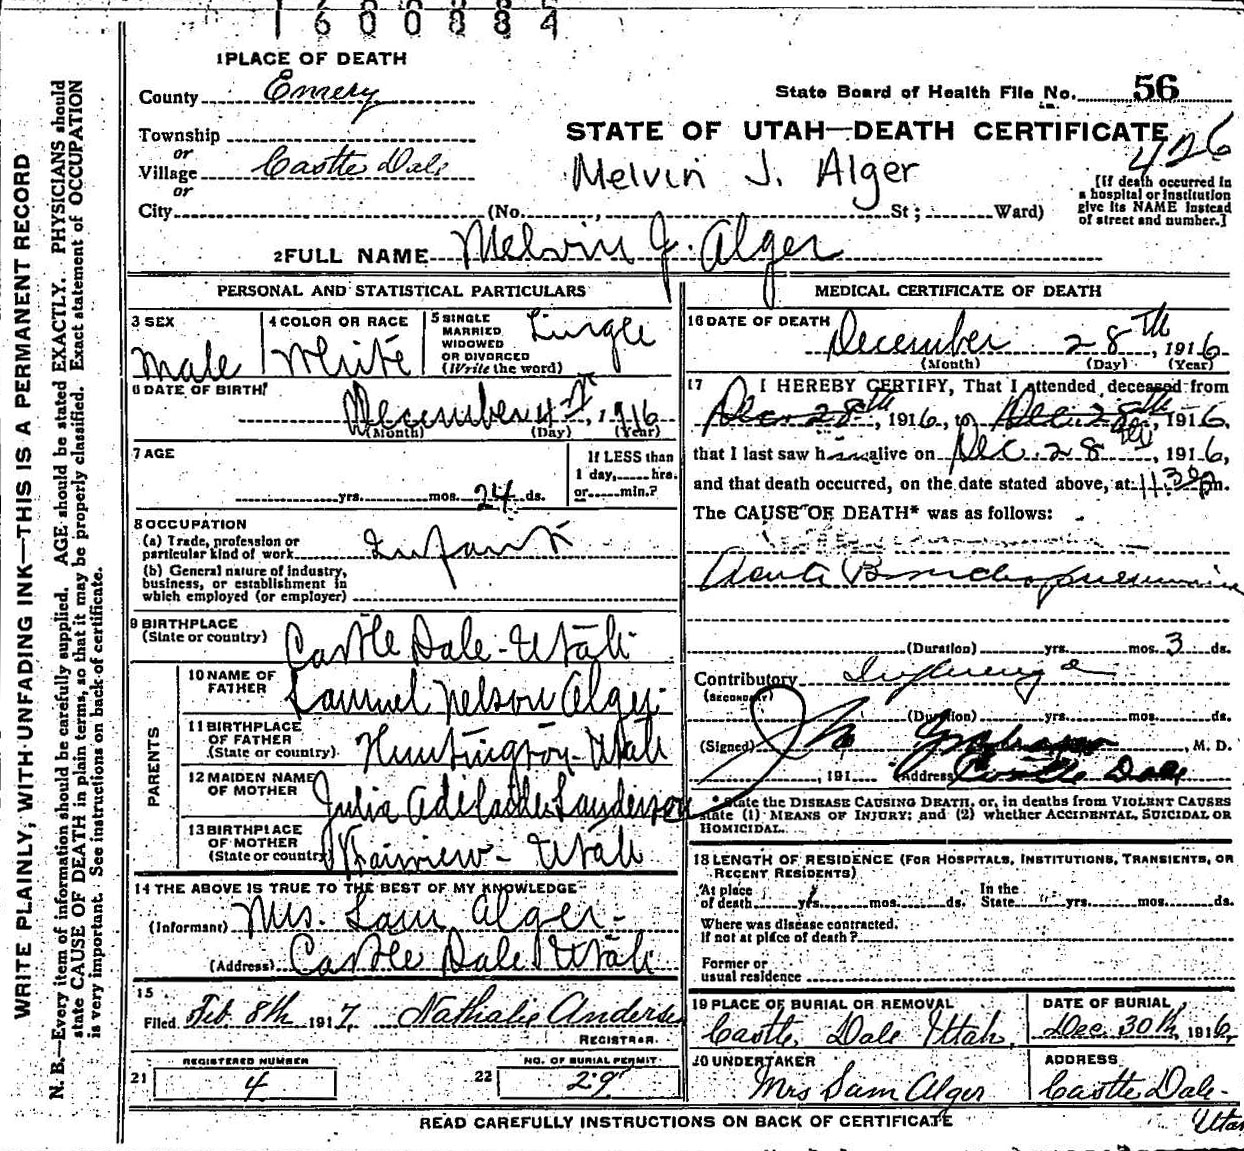 1600884
1 PLACE OF DEATH
County Emery
State Board of Health File No. 56
Township
or
Village Castle Dale
or
STATE OF UTAH—DEATH CERTIFICATE
426
Melvin J. Alger
[If death occurred in
a hospital or institution
give its NAME instead
of street and number.]
City (No. , St ; Ward)
2 FULL NAME Melvin J. Alger
PERSONAL AND STATISTICAL PARTICULARS
3 SEX
Male
4 COLOR OR RACE
White
5 SINGLE
MARRIED
WIDOWED
OR DIVORCED
(Write the word)
Single
6 DATE OF BIRTH
December 4th, 1916
(Month) (Day) (Year)
7 AGE
yrs. mos. 24 ds.
If LESS than
1 day, hrs.
or min.?
8 OCCUPATION
(a) Trade, profession or
particular kind of work Infant
(b) General nature of industry,
business, or establishment in
which employed (or employer)
9 BIRTHPLACE
(State or country) Castle Dale - Utah
PARENTS
10 NAME OF
FATHER Samuel Nelson Alger
11 BIRTHPLACE
OF FATHER
(State or country) Huntington - Utah
12 MAIDEN NAME
OF MOTHER Julia Sanderson
13 BIRTHPLACE
OF MOTHER
(State or country) Fairview - Utah
14 THE ABOVE IS TRUE TO THE BEST OF MY KNOWLEDGE
(Informant) Mrs. Sam Alger -
(Address) Castle Dale Utah
15
Filed Feb. 8th 1917. Nathalie Andersen
REGISTRAR.
21 REGISTERED NUMBER
4
22 NO. OF BURIAL PERMIT
29
MEDICAL CERTIFICATE OF DEATH
16 DATE OF DEATH
December 28th, 1916
(Month) (Day) (Year)
17 I HEREBY CERTIFY, That I attended deceased from
Dec 28th, 1916, to Dec 28th, 1916,
that I last saw h alive on Dec. 28, 1916,
and that death occurred, on the date stated above, at 11:30 pm.
The CAUSE OF DEATH* was as follows:
Acute Broncho pneumonia
(Duration) yrs. mos. 3 ds.
Contributory Influenza
(SECONDARY)
(Duration) yrs. mos. ds.
(Signed) , M. D.
, 191 (Address) Castle Dale
* State the DISEASE CAUSING DEATH, or, in deaths from VIOLENT CAUSES
state (1) MEANS OF INJURY; and (2) whether ACCIDENTAL, SUICIDAL OR
HOMICIDAL.
18 LENGTH OF RESIDENCE (FOR HOSPITALS, INSTITUTIONS, TRANSIENTS, OR
RECENT RESIDENTS)
At place
of death yrs. mos. ds.
In the
State yrs. mos. ds.
Where was disease contracted.
If not at place of death?
Former or
usual residence
19 PLACE OF BURIAL OR REMOVAL
Castle Dale Utah,
DATE OF BURIAL
Dec. 30th, 1916,
20 UNDERTAKER
Mrs Sam Alger
ADDRESS
Castle Dale -
Utah
READ CAREFULLY INSTRUCTIONS ON BACK OF CERTIFICATE
WRITE PLAINLY, WITH UNFADING INK—THIS IS A PERMANENT RECORD
N. B.—Every item of information should be carefully supplied. AGE should be stated EXACTLY. PHYSICIANS should
state CAUSE OF DEATH in plain terms, so that it may be properly classified. Exact statement of OCCUPATION
is very important. See instructions on back of certificate.